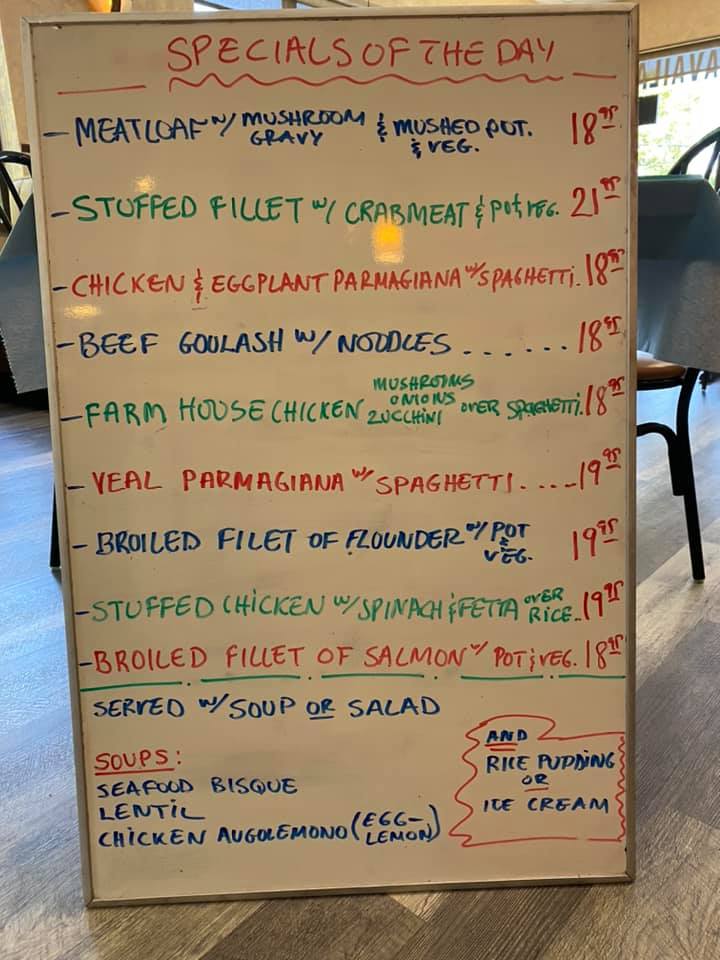 SPECIALS OF THE DAY
- MEATLOAF W/ MUSHROOM GRAVY & MUSHED POT. & VEG. 18.95
- STUFFED FILLET W/ CRABMEAT & POT, VEG. 21.95
- CHICKEN & EGGPLANT PARMAGIANA W/ SPAGHETTI. 18.95
- BEEF GOULASH W/ NOODLES ...... 18.95
- FARM HOUSE CHICKEN MUSHROOMS ONIONS ZUCCHINI OVER SPAGHETTI. 18.95
- VEAL PARMAGIANA W/ SPAGHETTI ..... 19.95
- BROILED FILET OF FLOUNDER W/ POT & VEG. 19.95
- STUFFED CHICKEN W/ SPINACH & FETTA OVER RICE. 19.95
- BROILED FILLET OF SALMON W/ POT & VEG. 18.95
SERVED W/ SOUP OR SALAD
SOUPS:
SEAFOOD BISQUE
LENTIL
CHICKEN AUGOLEMONO (EGG-LEMON)
AND
RICE PUDDING
OR
ICE CREAM
AVAILA